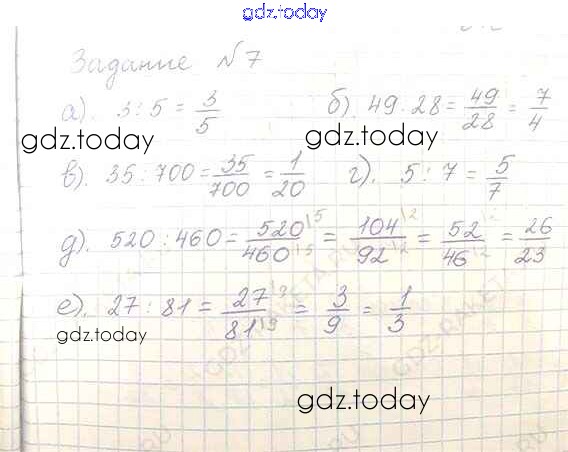 gdz.today
Задание №7
а). 3 : 5 = 3/5 б) 49 . 28 = 49/28 = 7/4
gdz.today gdz.today
в). 35 : 700 = 35/700 = 1/20 г). 5 : 7 = 5/7
д). 520 : 460 = 520/460 = 104/92 = 52/46 = 26/23
е). 27 : 81 = 27/81 = 3/9 = 1/3
gdz.today
gdz.today